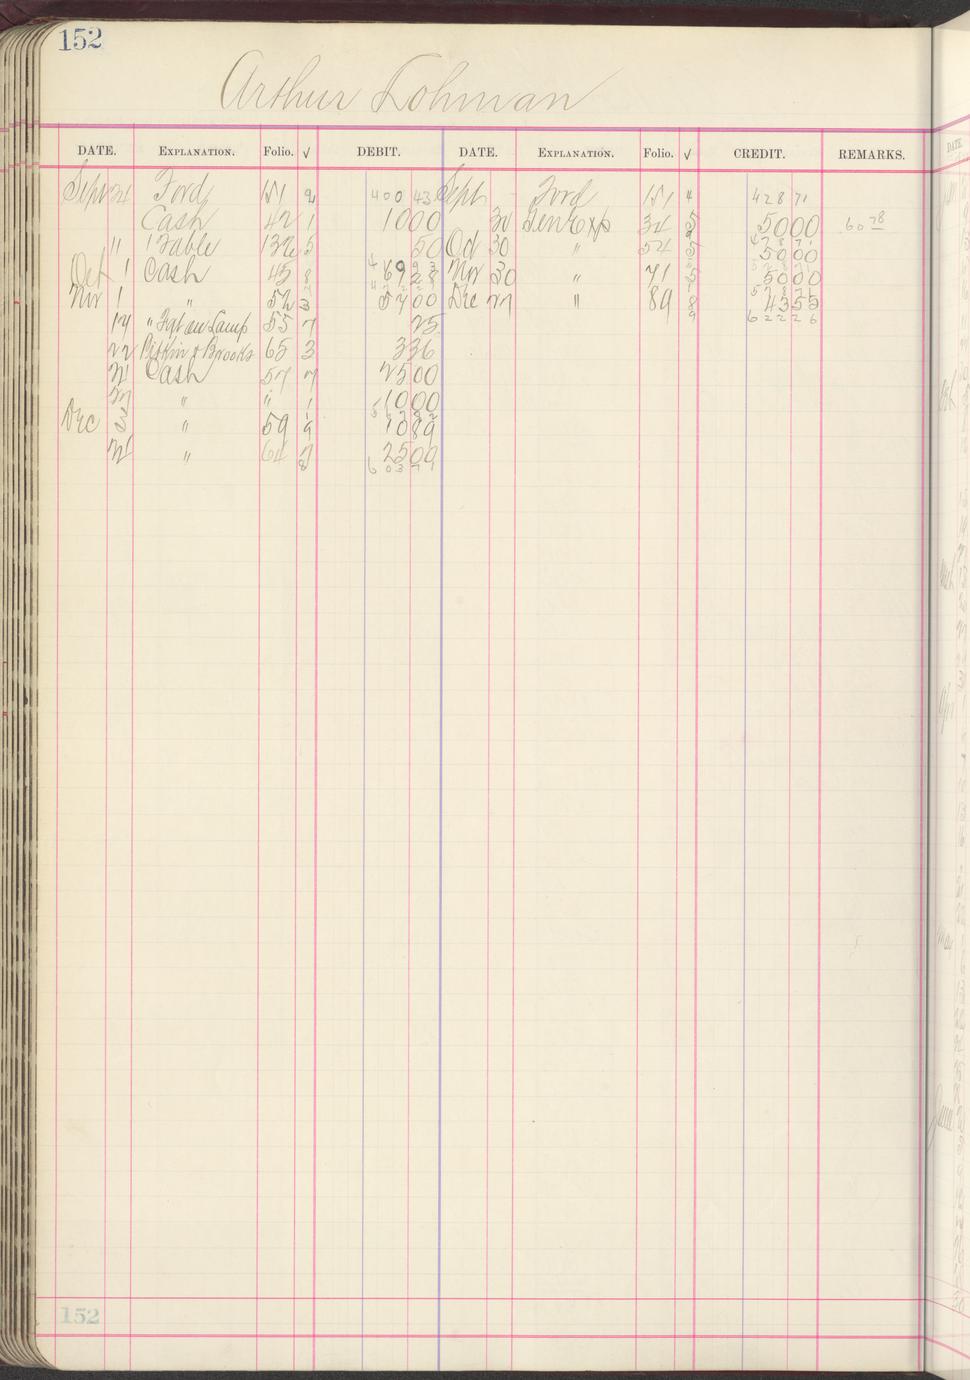 152
Arthur Lohman
DATE. EXPLANATION. Folio. √ DEBIT. DATE. EXPLANATION. Folio. √ CREDIT. REMARKS.
Sept 24 Ford 151 2 400 43 Sept Ford 151 4 428 71
Cash 42 1 10 00 30 Gen Exp 34 5 50 00 60 78
" 1 Table 132 5 50 Oct 30 " 54 5 50 00
Oct 1 Cash 45 8 69 28 Nov 30 " 71 5 50 00
Nov 1 " 52 3 57 00 Dec 27 " 89 8 43 55
622 26
14 " Fgt on Lamp 55 7 25
22 Pitkin & Brooks 65 3 3 36
Cash 57 7 25 00
" " 1 10 00
Dec 3 " 59 9 10 89
" 64 7 25 00
603 71
152